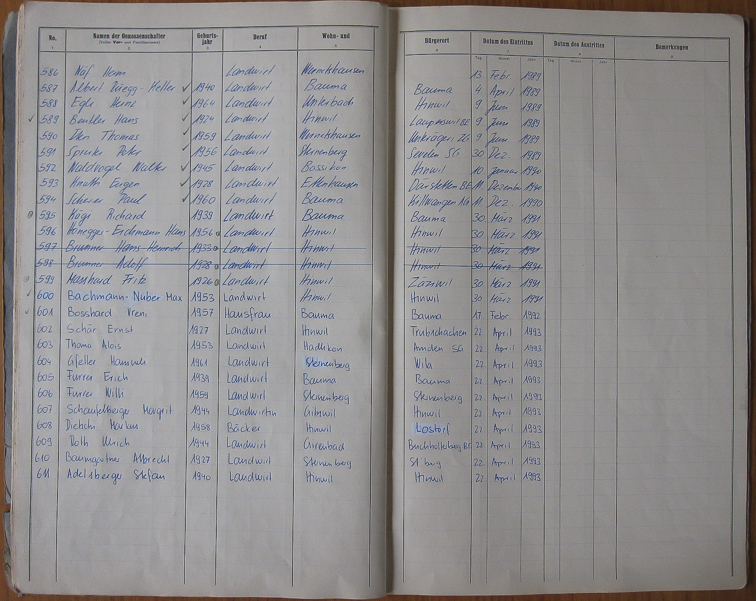 No. Namen der Genossenschafter Geburtsjahr Beruf Wohn- und Bürgerort Datum des Eintrittes Datum des Austrittes Bemerkungen
586 Näf Landwirt Wernetshausen 13. Febr. 1989
587 Albert Rüegg-Heller ✓ 1940 Landwirt Bauma Bauma 4 April 1989
588 Egli Heinz ✓ 1964 Landwirt Unterbach Hinwil 9 Juni 1989
✓ 589 Hans ✓ 1924 Landwirt Hinwil Lauperswil BE 9 Juni 1989
590 Iten Thomas ✓ 1959 Landwirt Wernetshausen Unterägeri ZG 9 Juni 1989
591 Peter ✓ 1956 Landwirt Steinenberg SG 30 Dez. 1989
592 Waldvogel Walter ✓ 1945 Landwirt Bossikon Hinwil 10 Januar 1990
593 Eugen ✓ 1928 Landwirt Ettenhausen Därstetten BE 11 Dezember 1990
594 Scherer Paul ✓ 1960 Landwirt Bauma AG 11 Dez. 1990
595 Kägi Richard 1939 Landwirt Bauma Bauma 30 März 1991
596 Honegger-Eichmann Hans 1956 Landwirt Hinwil Hinwil 30 März 1991
597 Brunner Hans-Heinrich 1933 Landwirt Hinwil Hinwil 30 März 1991
598 Brunner Adolf 1928 Landwirt Hinwil Hinwil 30 März 1991
599 Fritz 1926 Landwirt Hinwil Zäziwil 30 März 1991
✓ 600 Bachmann-Nüber Max 1953 Landwirt Hinwil Hinwil 30 März 1991
✓ 601 Bosshard Vreni 1957 Hausfrau Bauma Bauma 17. Febr. 1992
602 Schär Ernst 1927 Landwirt Hinwil Trubschachen 22. April 1993
603 Thoma Alois 1953 Landwirt Hadlikon Amden SG 22. April 1993
604 Gfeller 1961 Landwirt Steinenberg Wila 22. April 1993
605 Furrer Erich 1939 Landwirt Bauma Bauma 22. April 1993
606 Furrer Willi 1959 Landwirt Steinenberg Sternenberg 22. April 1993
607 Schaufelberger Margrit 1944 Landwirtin Hinwil 22. April 1993
608 1968 Bäcker Hinwil Lostorf 22. April 1993
609 Roth Ulrich 1944 Landwirt Girenbad Buchholterberg BE 22. April 1993
610 Baumgartner Albrecht 1927 Landwirt Steinenberg 22. April 1993
611 Adelsberger Stefan 1940 Landwirt Hinwil Hinwil 22. April 1993